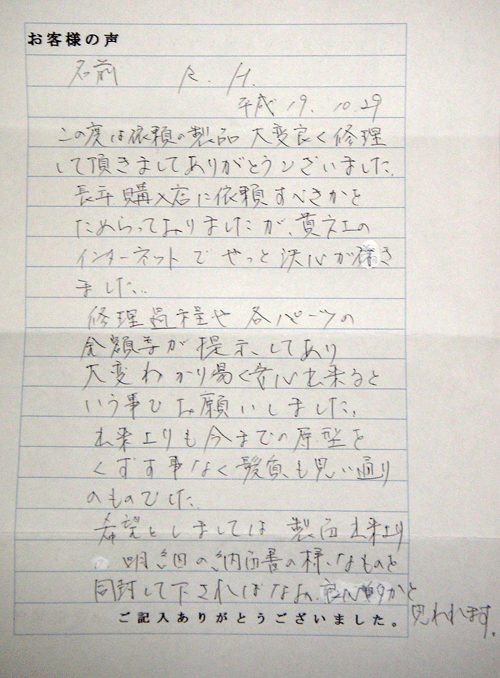 お客様の声
名前 K. H.
平成 19. 10. 29
この度は依頼の製品 大変良く修理
して頂きましてありがとうございました。
長年購入店に依頼すべきかを
ためらっておりましたが、貴社の
インターネットでやっと決心が着き
ました。
修理過程や各パーツの
金額等が提示してあり
大変わかり易く安心出来ると
いう事でお願いしました。
出来上りも今までの原型を
くずす事なく髪質も思い通り
のものでした。
希望としましては 製品出来上り
明細の納品書の様なものを
同封して下さればなお かと
思われます。
ご記入ありがとうございました。